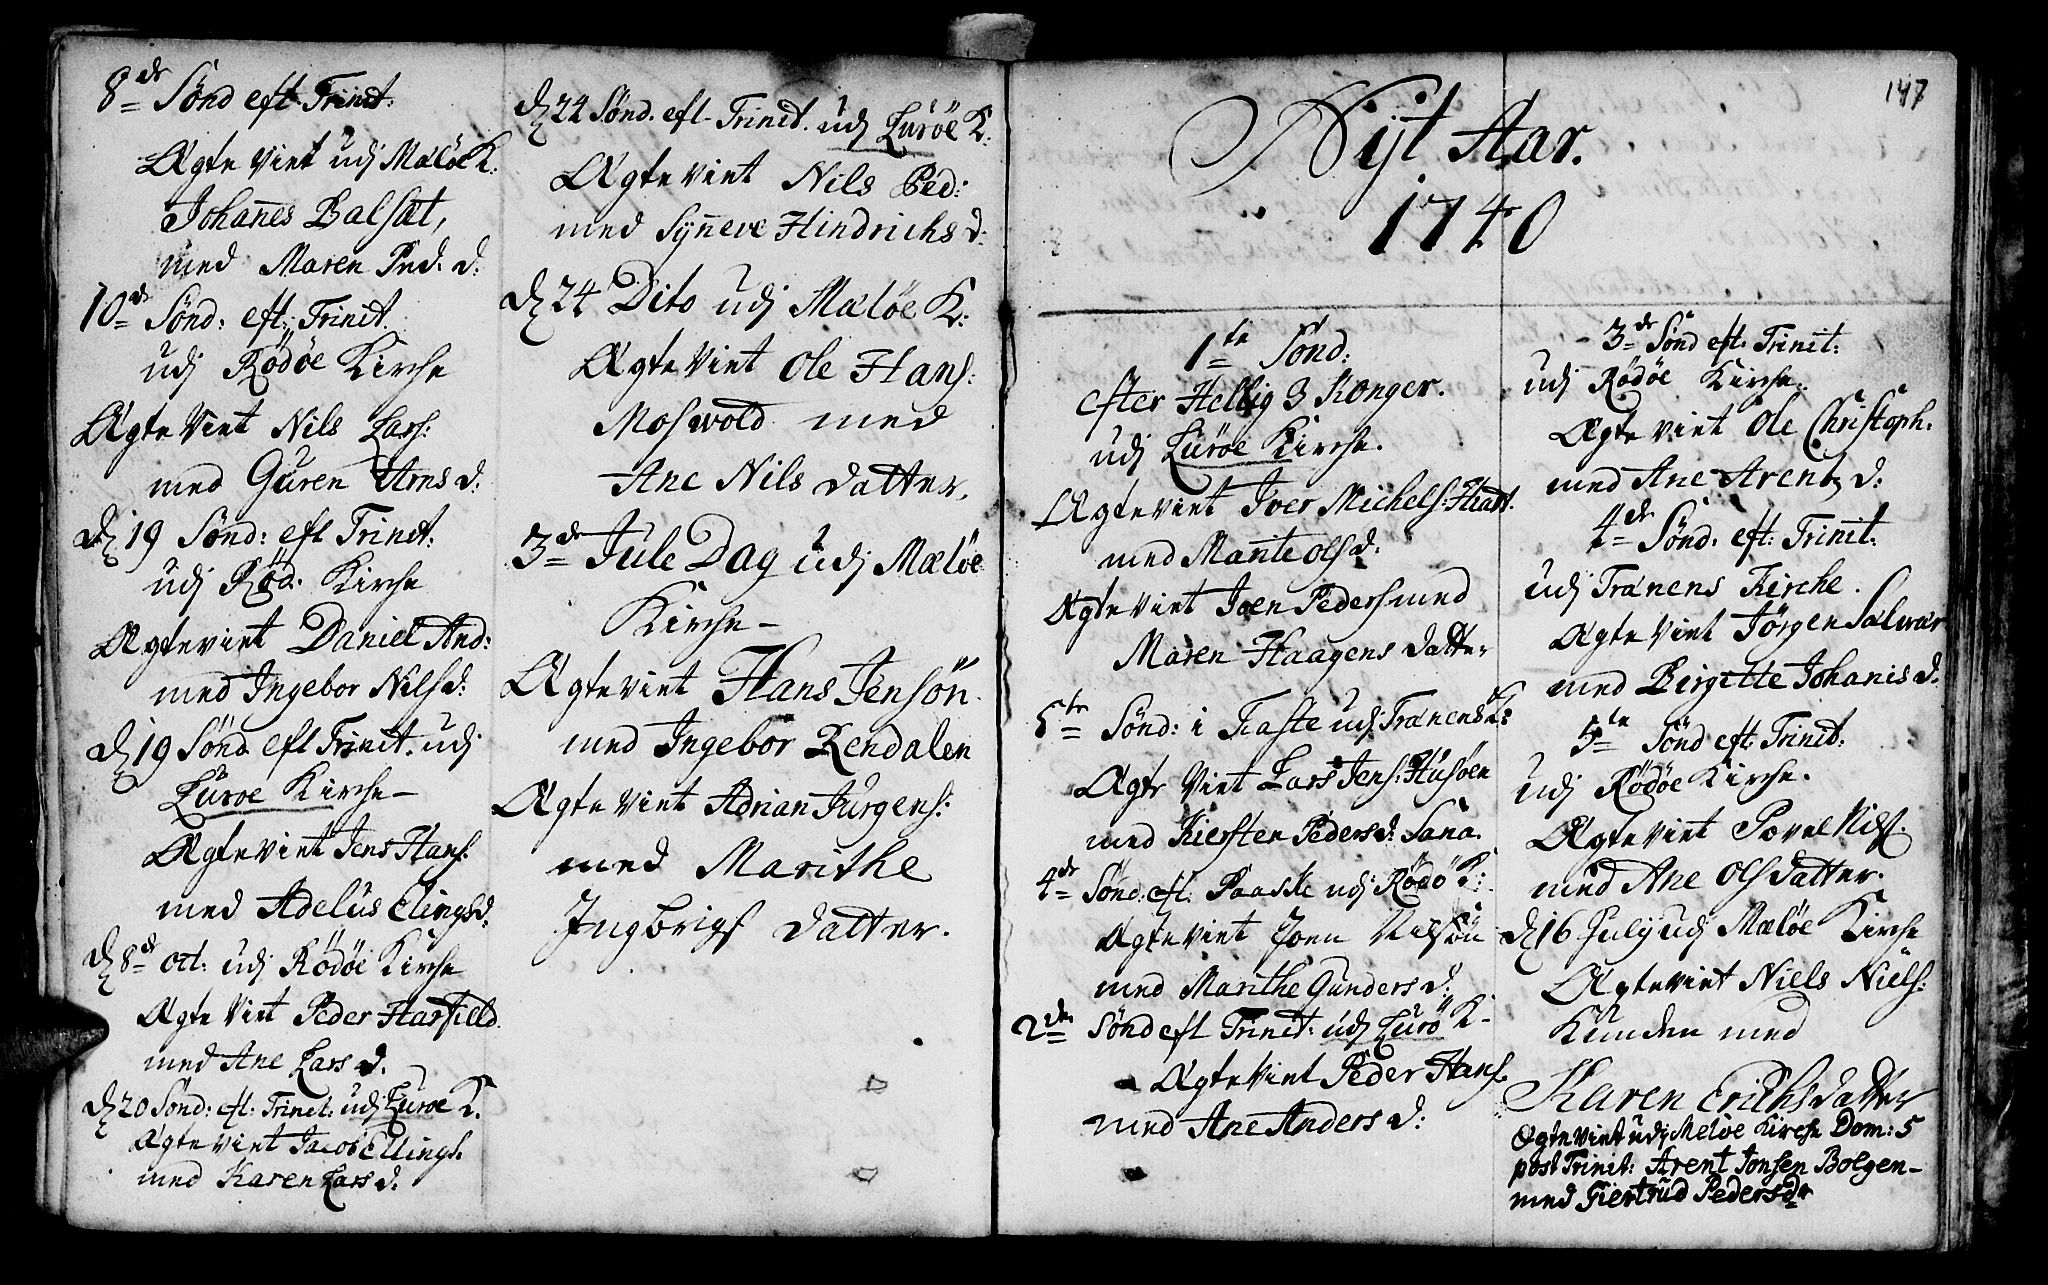 8de Sönd eft Trinit:
Ægte Viet udj Meløe K:
Johannes Balsæt,
med Maren Ped. d:
10de Sönd: eft: Trinit.
udj Rödöe Kirche
Ægte Viet Nils Lars:
med Guren Arns d:
d 19 Sönd: eft Trinit:
udj Röd. Kirche
Ægteviet Daniel And:
med Ingebor Nils d:
d 19 Sönd eft Trinit. udj
Luröe Kirche
Ægteviet Jens Hans:
med Adelus Elings d:
d 8de oct: udj Rödöe Kirche
Ægte Viet Peder Harfield
med Ane Lars d.
d 20 Sönd: eft: Trinit: udj Luroe K.
Ægte viet Jacob Ellings:
med Karen Lars d:
d 24 Sönd. eft. Trinit. udj Luröe K:
Ægteviet Nils Ped:
med Syneve Hindrichs d:
d 24 Dito udj Mæløe K:
Ægte Viet Ole Hans:
Moswold med
Ane Nils datter,
3de Jule Dag udj Mæløe
Kirche
Ægteviet Hans Jensön
med Ingebor Rendalen
Ægte Viet Adrian Jurgens:
med Marithe
Ingbrigs datter.
147
Nyt Aar.
1740
1te Sönd:
efter Hellig 3 Konger.
udj Luröe Kirche.
Ægteviet Iver Michels:
med Mante Ols d:
Ægteviet Joen Peders med
Maren Haagens datter
5te Sönd: i Faste udj Trænens K:
Ægte Viet Lars Jens: Husöen
med Kiersten Peders d: Sana.
4de Sönd: eft. Paaske udj Rödö K:
Ægte viet Joen Nilsön
med Marithe Gunders d:
2den Sönd eft Trinit: udj Lurö K
Ægte Viet Peder Hans:
med Ane Anders d:
3de Sönd eft: Trinit:
udj Rödöe Kirche.
Ægte viet Ole Christoph.
med Ane Arentz d:
4de Sönd: eft: Trinit:
udj Trænens Kirche.
Ægte Viet Jörgen Selvær
med Birgitte Johanis d.
5te Sönd eft: Trinit:
udj Rödöe Kirche.
Ægte viet Povel Nils.
med Ane Ols datter.
d 16 July udj Mæløe Kirche
Ægteviet Niels Niels:
Kunden med
Karen Erichsdatter
Ægteviet udj Meløe Kirche Dom: 5
post Trinit: Arent Jonsen Bolgen
med Giertrud Pedersdr